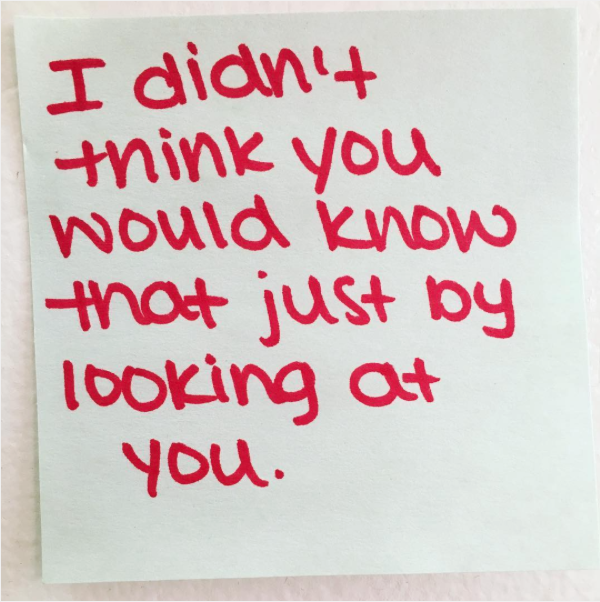 I didn't
think you
would know
that just by
looking at
you.